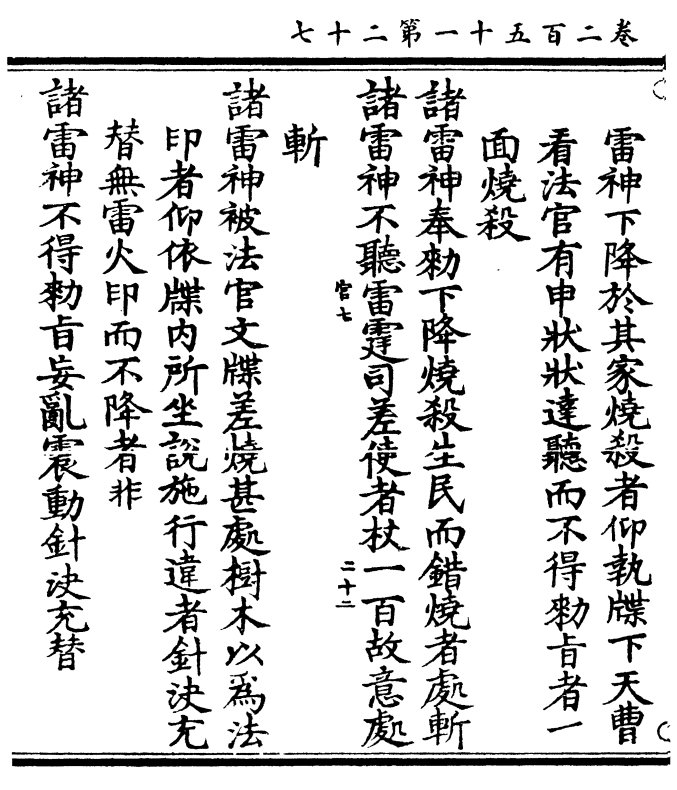 卷二百五十一第二十七
雷神下降於其家燒殺者仰執牒下天曹
看法官有申狀狀達聽而不得勑㫖者一
面燒殺
諸雷神奉勑下降燒殺生民而錯燒者處斬
諸雷神不聽雷霆司差使者杖一百故意處
官七
二十二
斬
諸雷神被法官文牒差燒甚處樹木以爲法
印者仰依牒内所坐説施行違者針决充
替無雷火印而不降者非
諸雷神不得勑㫖妄亂震動針决充替